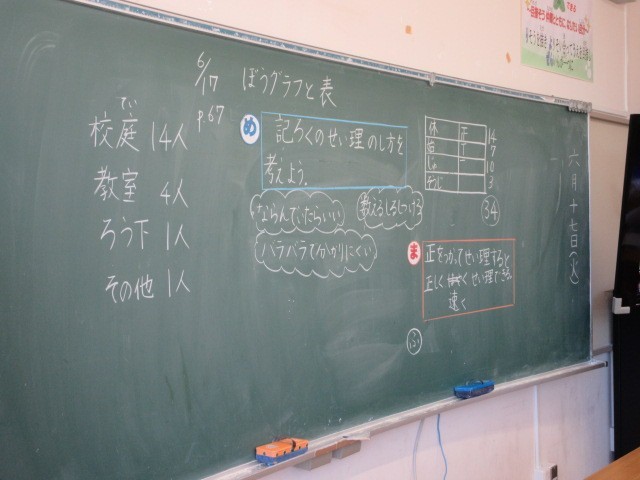 6/17 ぼうグラフと表
p.67
てい
校庭 14人
教室 4人
ろう下 1人
その他 1人
め
記ろくのせい理のし方を
考えよう。
ならんでいたらいい
数えるしるしつける
バラバラで分かりにくい
体 正 14
7
10
3
34
ま
正をつかってせい理すると
正しくせい理できる。
速く
ふ
六月十七日(火)